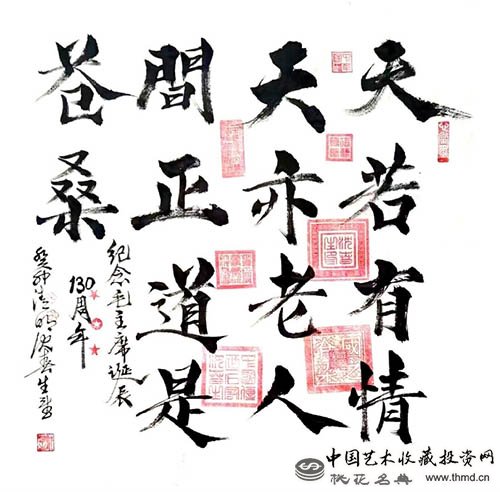 天若有情
天亦老人
間正道是
苍桑
纪念毛主席诞辰
130周年
中国艺术收藏投资网
www.thmd.cn